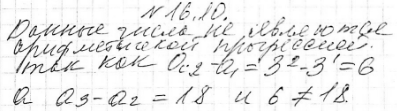 №16.10.
Данные числа не являются
арифметической прогрессией.
так как a₂-a₁=3²-3¹=6
а a₃-a₂=18 и 6≠18.